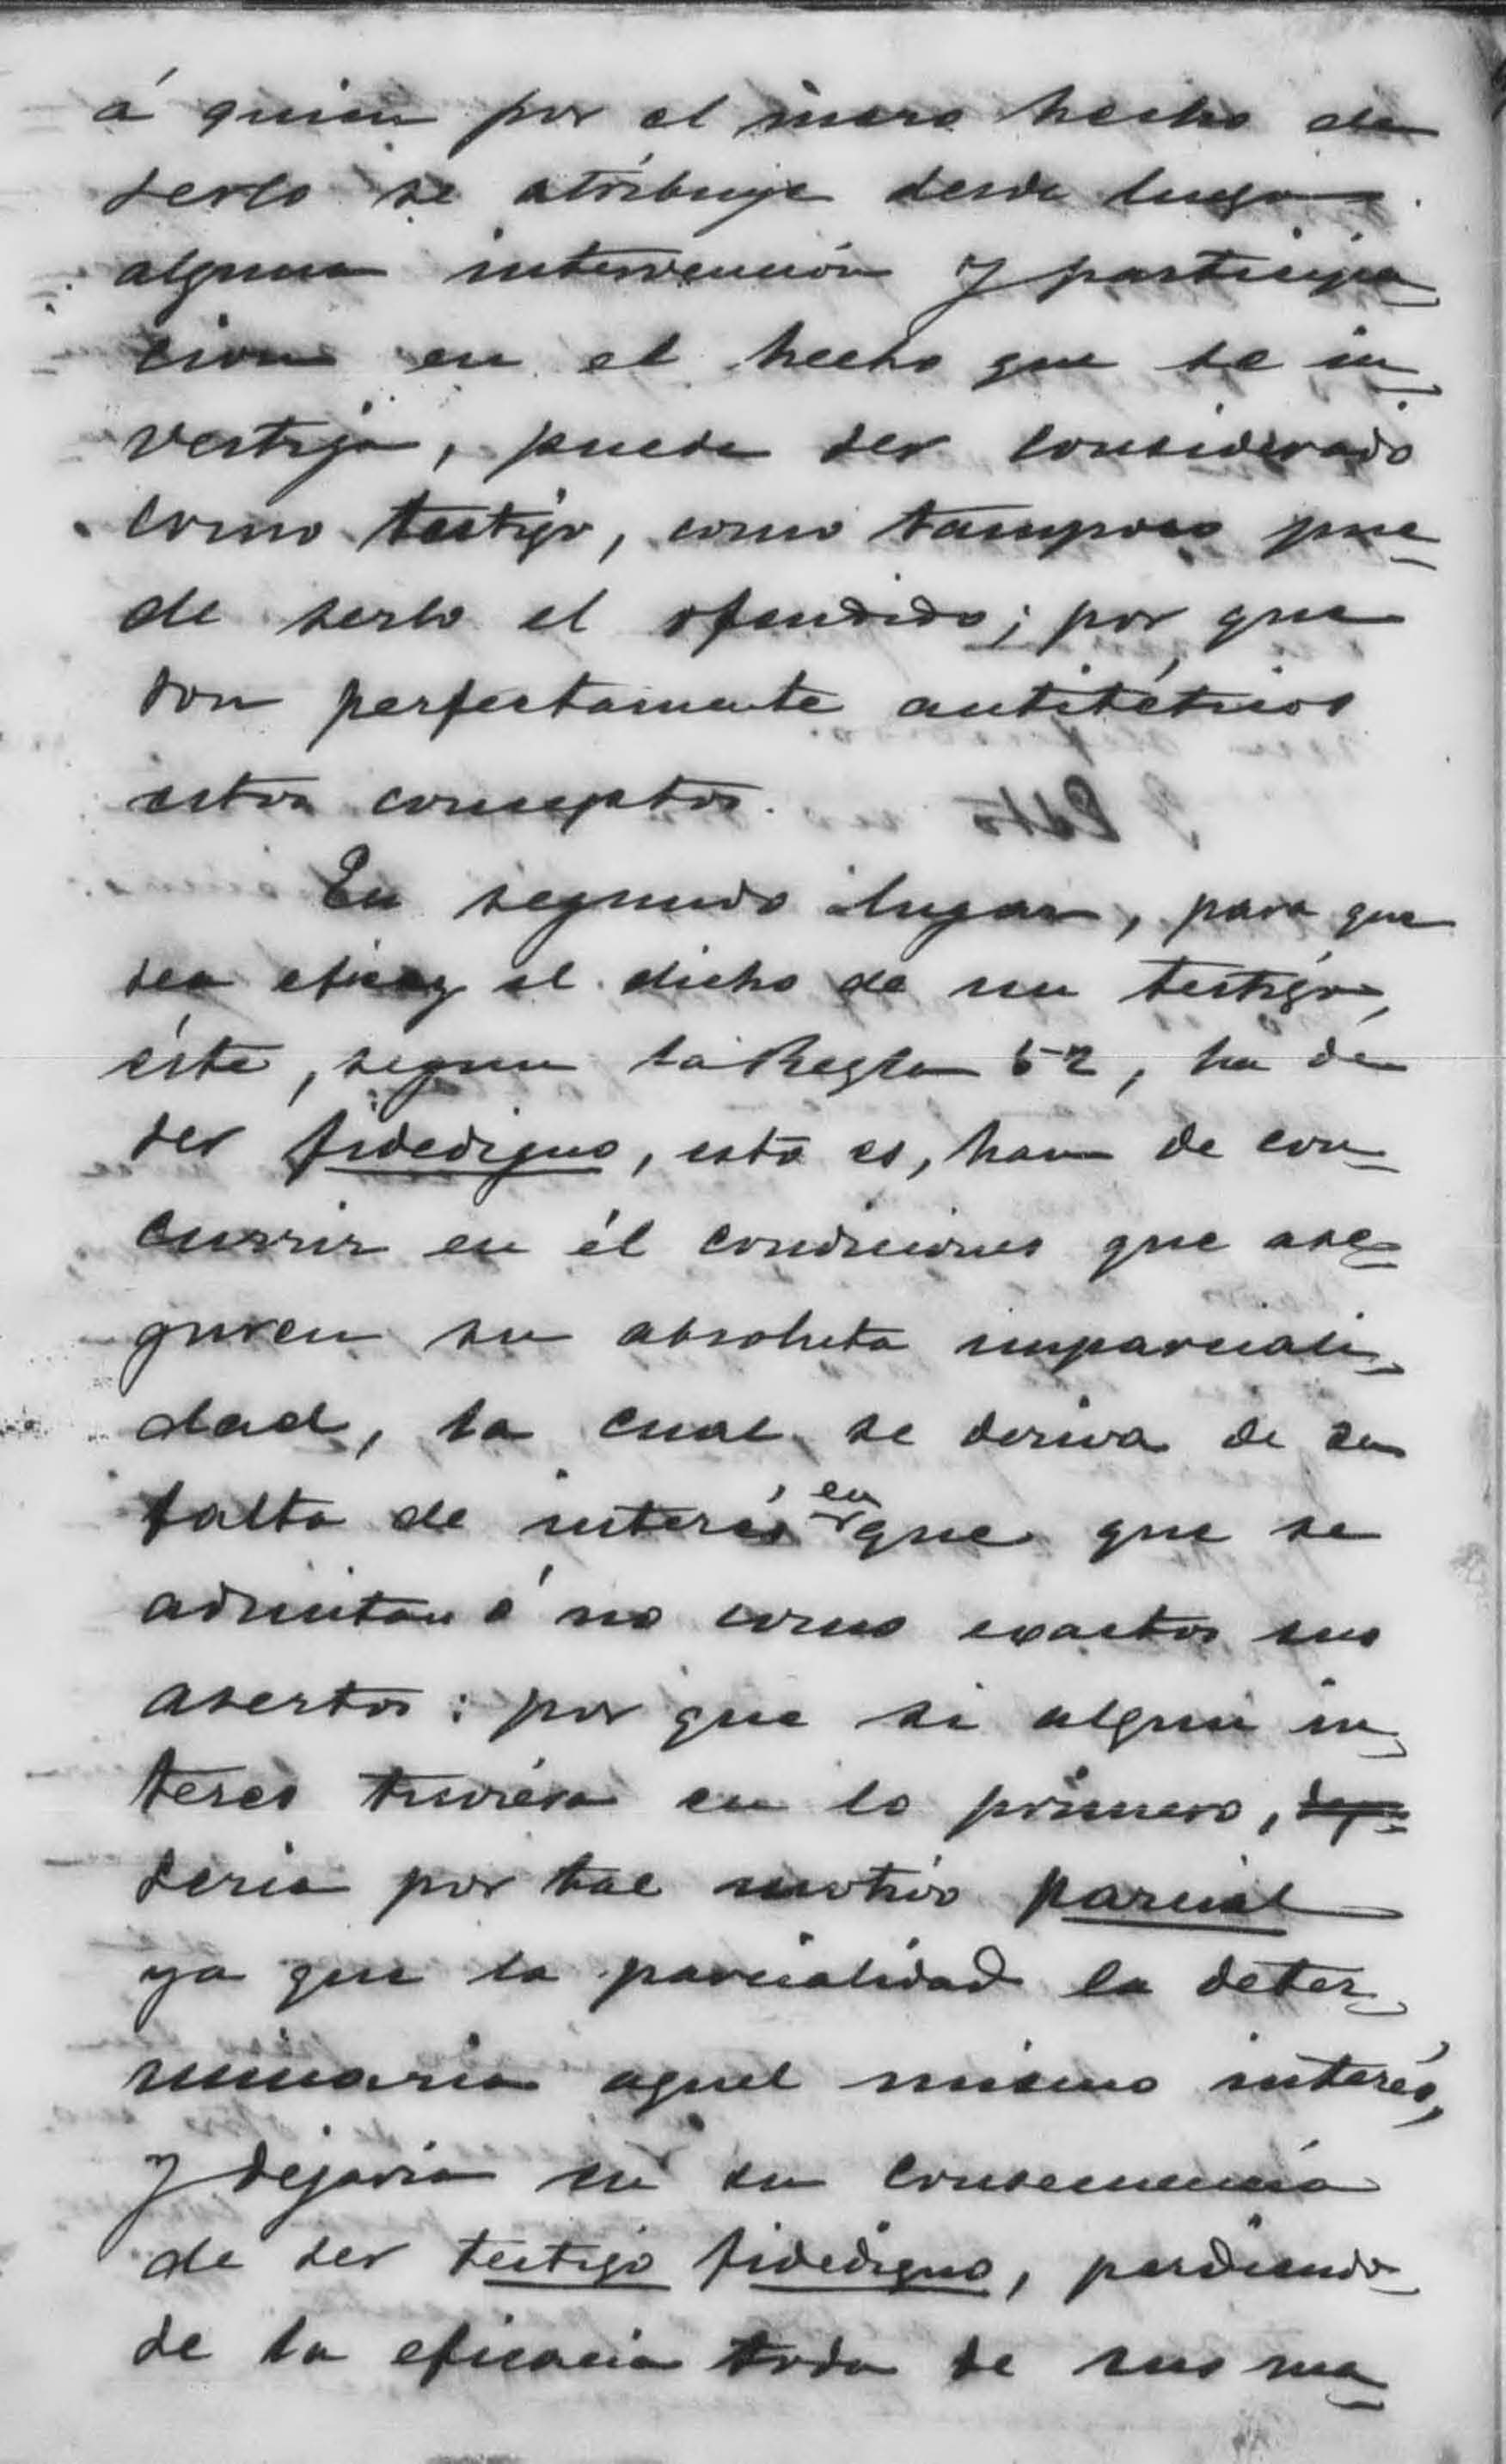 á quien por el mero hecho de
serlo se atribuye desde luego
alguna intervención y participa-
cion en el hecho que se in-
vestiga, puede ser considerado
como testigo, como tampoco pue-
de serlo el ofendido; por que
son perfectamente antitéticos
estos conceptos.
En segundo lugar, para que
sea eficaz el dicho de un testigo,
éste, segun la Regla 52, ha de
ser fidedigno, esto es, han de con-
currir en él condiciones que ase-
guren su absoluta imparciali-
dad, la cual se deriva de su
falta de interés en que que se
admitan ó no como exactos sus
asertos: por que si algun in-
terés tuviera en lo primero,
seria por tal motivo parcial
ya que la parcialidad la deter-
minaria aquel mismo interés,
y dejaria en su consecuencia
de ser testigo fidedigno, perdiendo-
se la eficacia toda de sus ma-